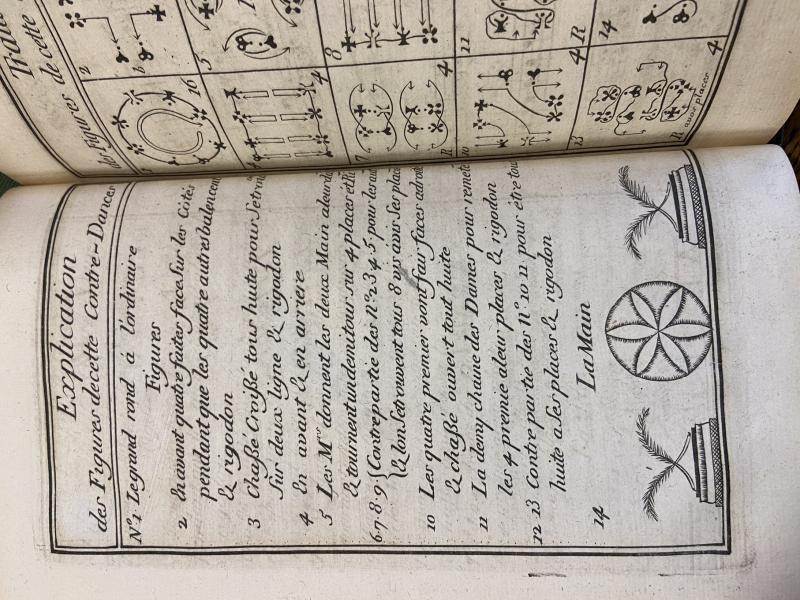 Explication
des Figures de cette Contre-Dances
N.º 1 Le grand rond á l'ordinaire
Figures
2 En avant quatre faites face sur les Côtés
pendent que les quatre autres balencent
& rigodon
3 Chaßé Croißé tous huite pour
sur deux ligne & rigodon
4 En avant & en arriere
5 Les M.rs donnent les deux Main
& tournent un demi tour sur 4 places
6·7·8·9 Contre partie des N.os 2·3·4·5· pour les
& lon se trouvent tous 8 vis avis ses
10 Les quatre premier vont fair faces
& chaßé ouvert tout huite
11 La demy chaine des Dames pour
les 4 premie a leur places & rigodon
12·13 Contre partie des N.º 10 11 pour être
huite a ses places & rigodon
14 La Main
des Figures de cette
2
b
16
5
4
8
4
11
4 R
13
14
4